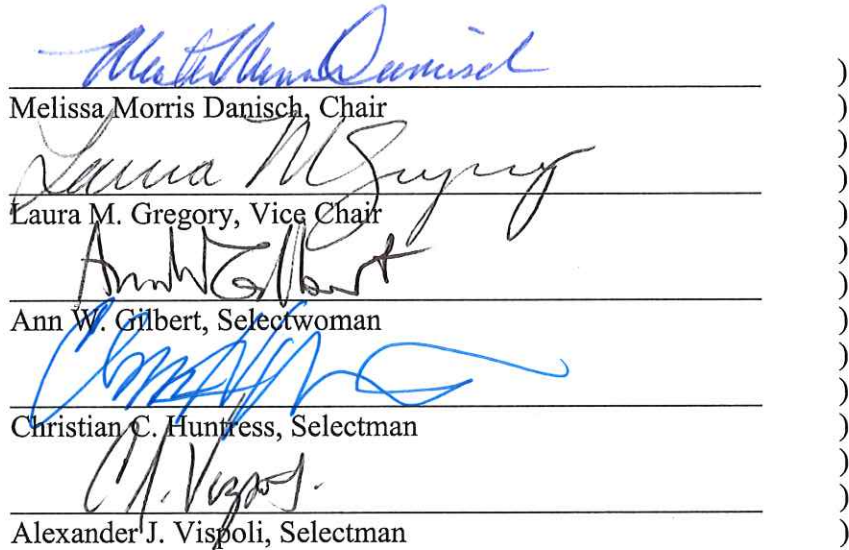 Melissa Morris Danisch )
)
Melissa Morris Danisch, Chair )
)
Laura M Gregory )
Laura M. Gregory, Vice Chair )
)
Ann W Gilbert )
Ann W. Gilbert, Selectwoman )
)
)
Christian C. Huntress, Selectman )
)
A. J. Vispoli )
Alexander J. Vispoli, Selectman )